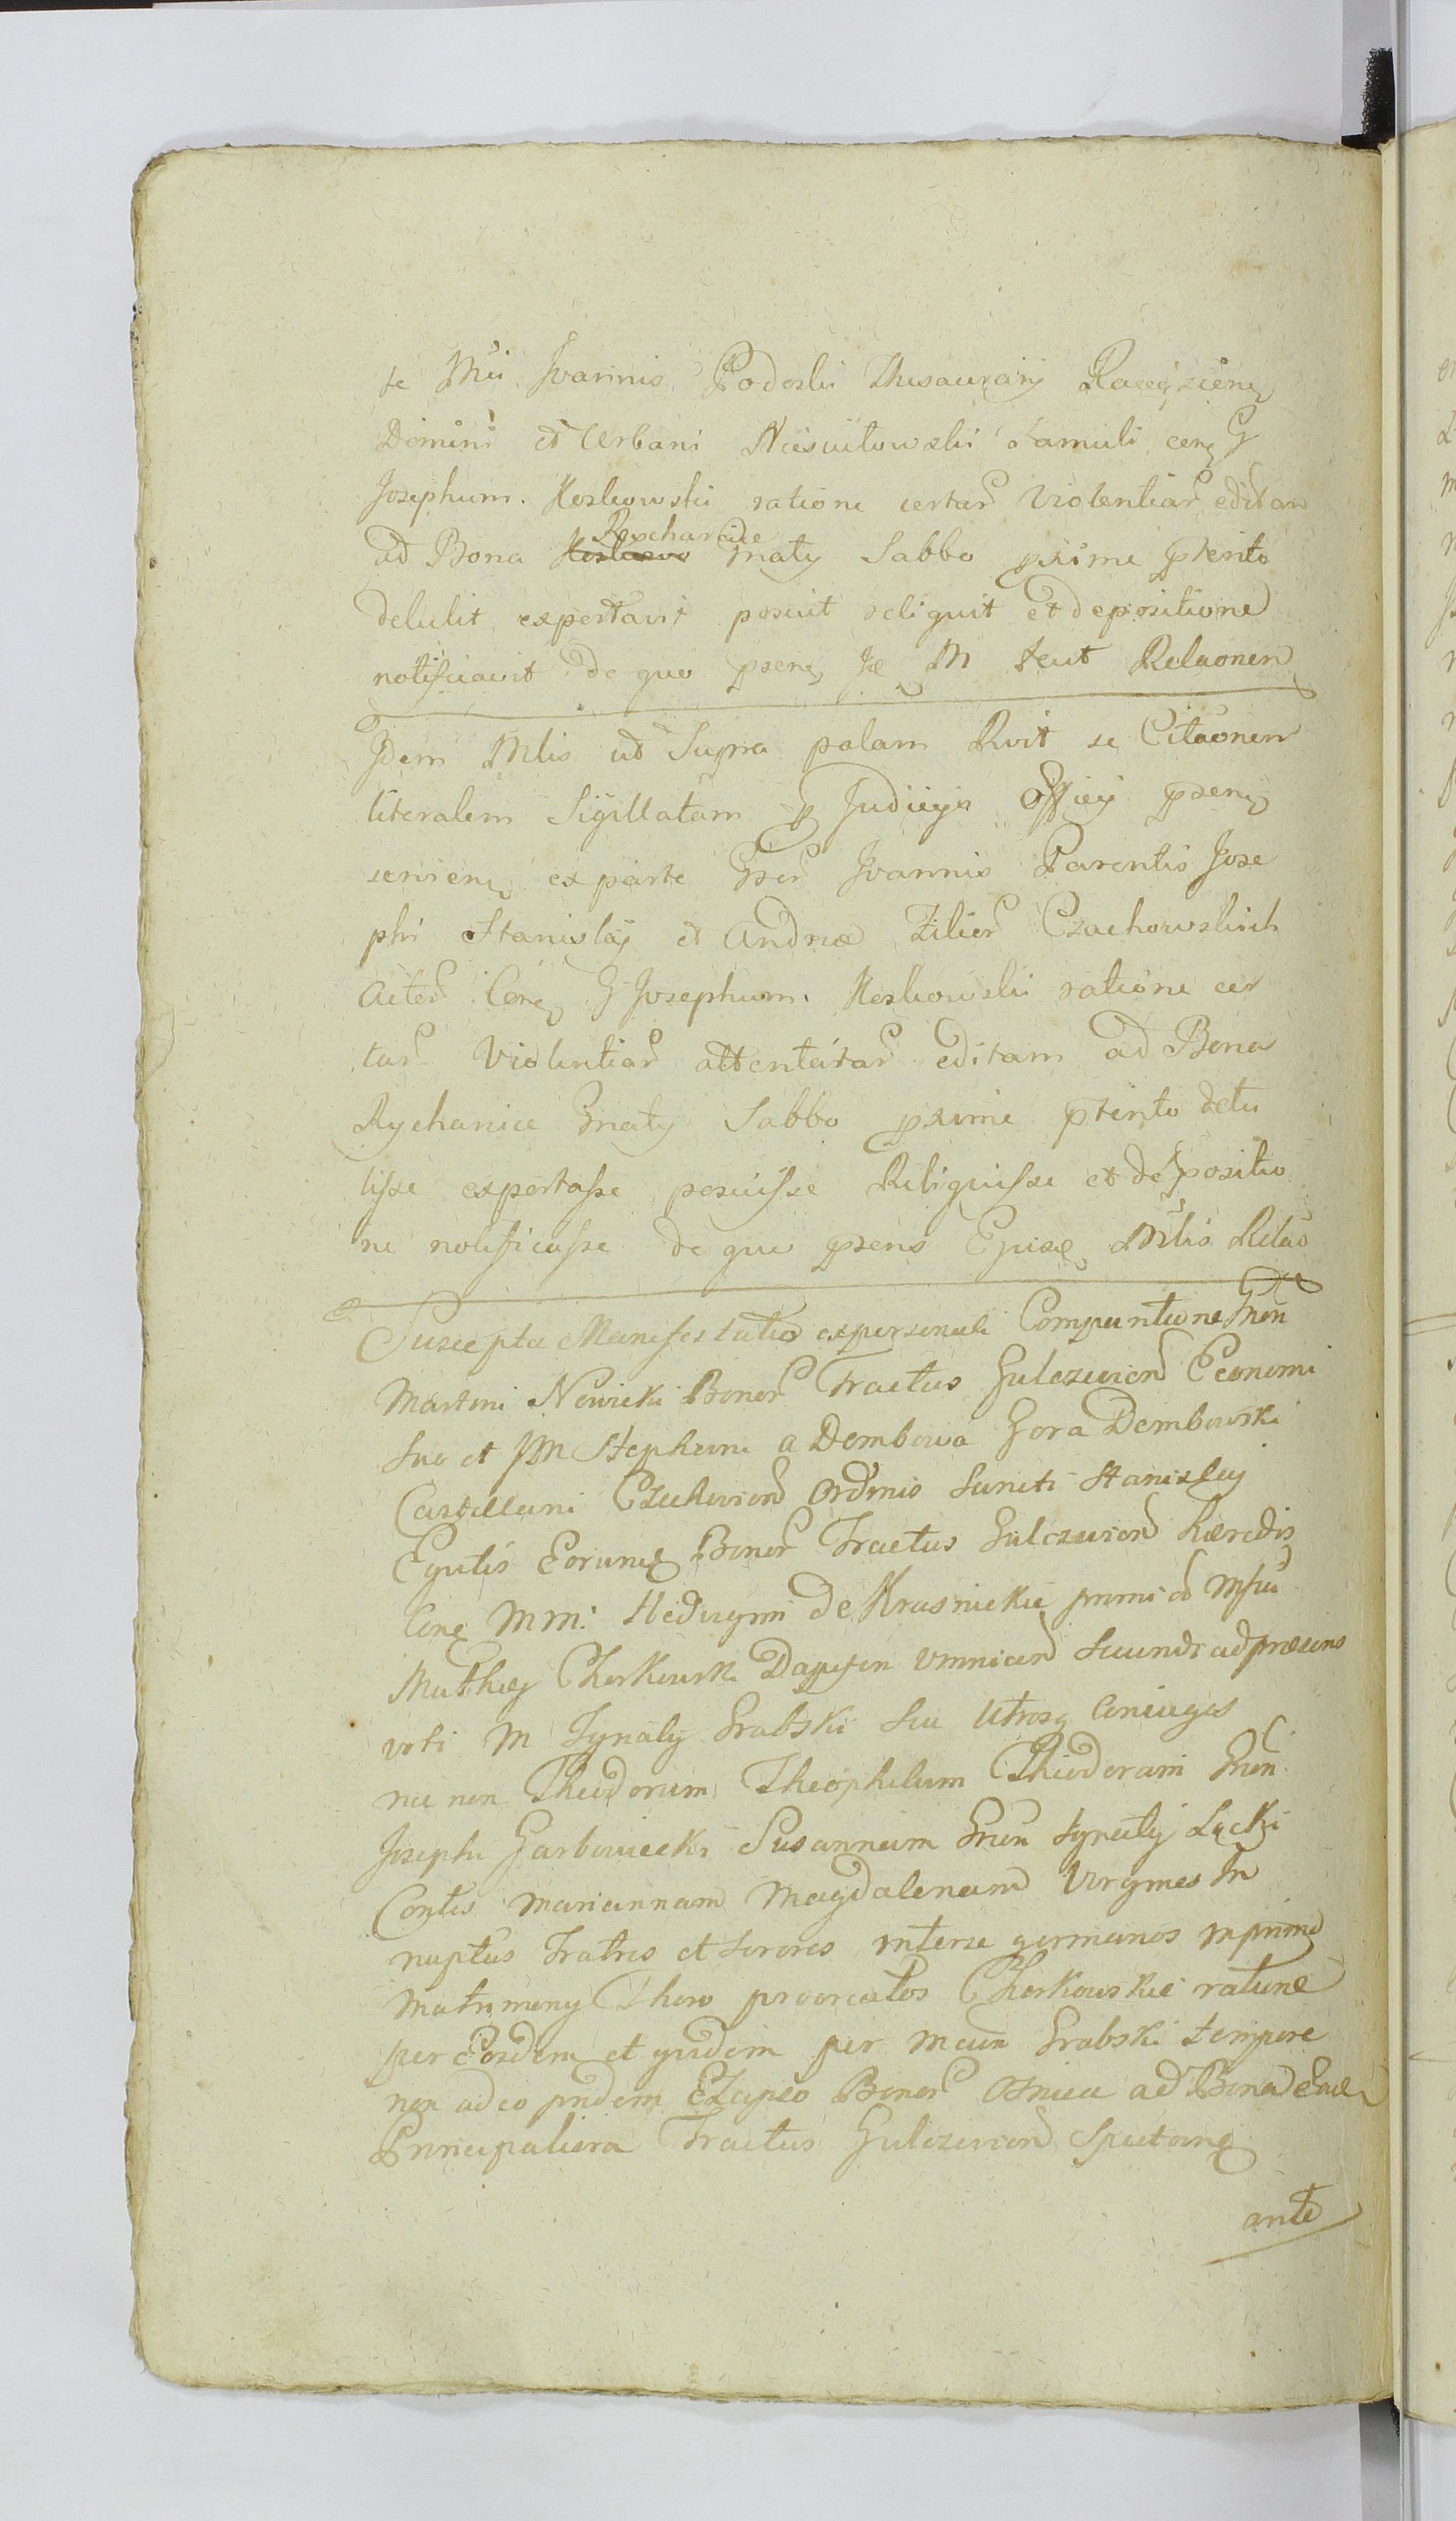 te Mci Joannis Podoski Thesaurarij Raciązien
Domini et Urbani Niesiułowski Famuli con G
Josephum Koskowski ratione certar Violentiar editam
ad Bona Koskowo Rychanice Gnaty Sabbo proxime pterito
detulit exportavit posuit reliquit et depositione
notificavit de quo psens Je M fecit Relaonem
Idem Mlis ut Supra palam Rvit se Citaonem
literalem Sigillatam p Judicijs Officij psens
servien ex parte Gser Joannis Parentis Jose
phi Stanislaj et Andreæ Filior Czachowskich
Actor Con G Josephum Koskowski ratione cer
tar Violentiar attentatar editam ad Bona
Rychanice Gnaty Sabbo proxime pterito detu
lisse exportasse posuisse Reliquisse et depositio
ne notificasse de quo psens Ejusq Mlis Relao
Suscepta Manifestatio ex personali Comparitione Gnen
Martini Nowicki Bonor Tractus Gulczevien Economi
Suo et JM Stephani a Dembowa Gora Dembowski
Castellani Czechovien Ordinis Sancti Stanislaj
Equitis Eorumq Bonor Tractus Gulczevien Hæredis
Con Mm: Hedvigim de Krasnickie primi od Mfici
Mathej Chorkowski Dapiferi secundi ad præsens
voti M Ignatij Grabski seu Utrosq Coniuges
nec non Theodorum Theophilum Theodoram Gnen
Josephi Garbowiecki Susannam Gnen Ignatij Łącki
Contes Mariannam Magdalenam Virgines In
nuptas Fratres et Sorores inter se germanos in primo
Matrimony Thoro procreatos Chorkowskie ratione
per Eosdem et quidem per Mcum Grabski tempore
non adeo pridem Elapso Bonor Osnica ad Bona
Principaliora Tractus Gulczevien Spectan
ante